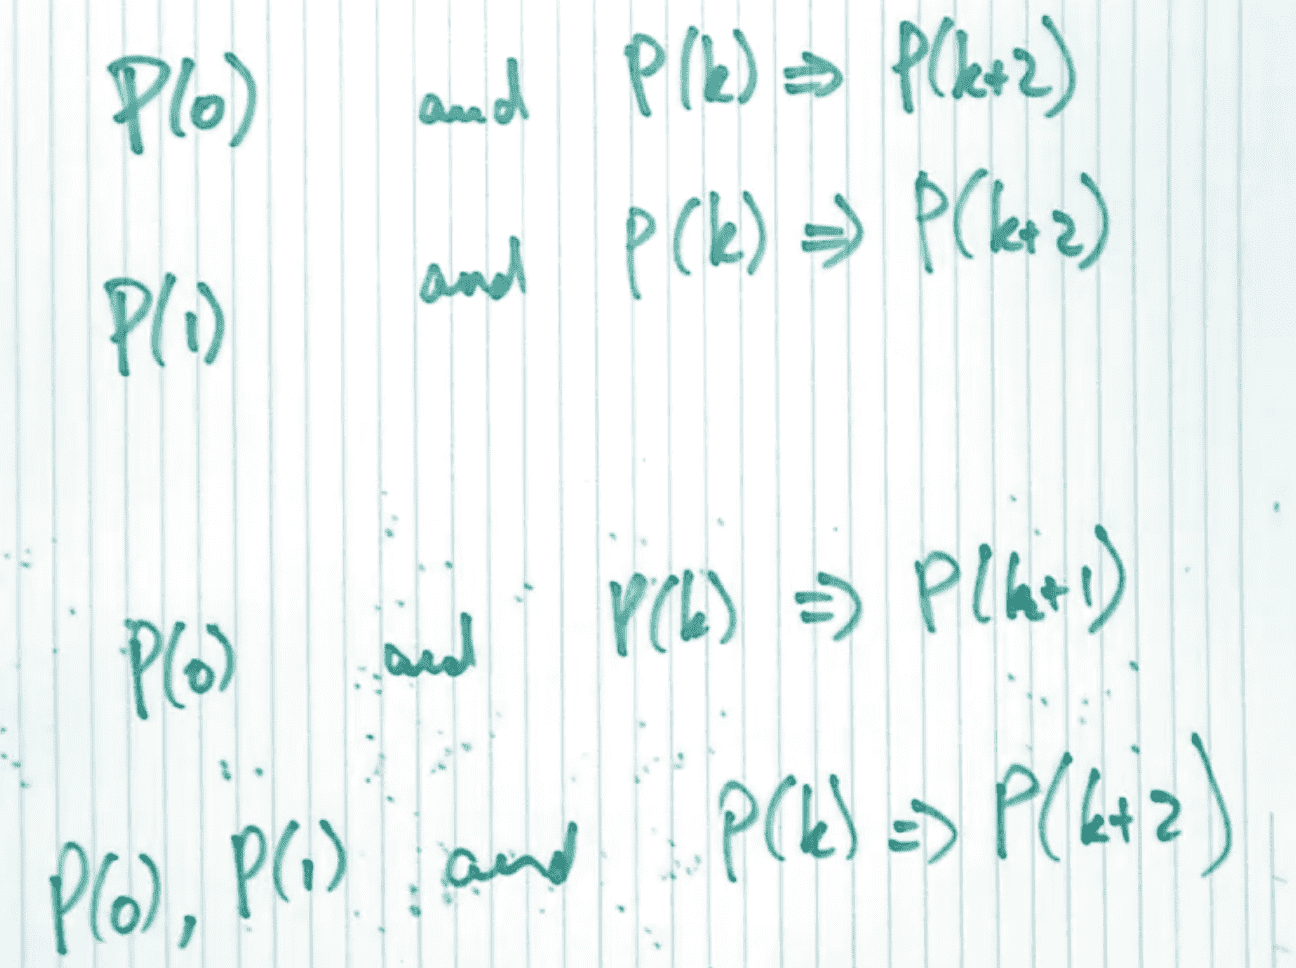 P(0) and P(k) ⇒ P(k+2)
P(1) and P(k) ⇒ P(k+2)
P(0) and P(k) ⇒ P(k+1)
P(0), P(1) and P(k) ⇒ P(k+2)